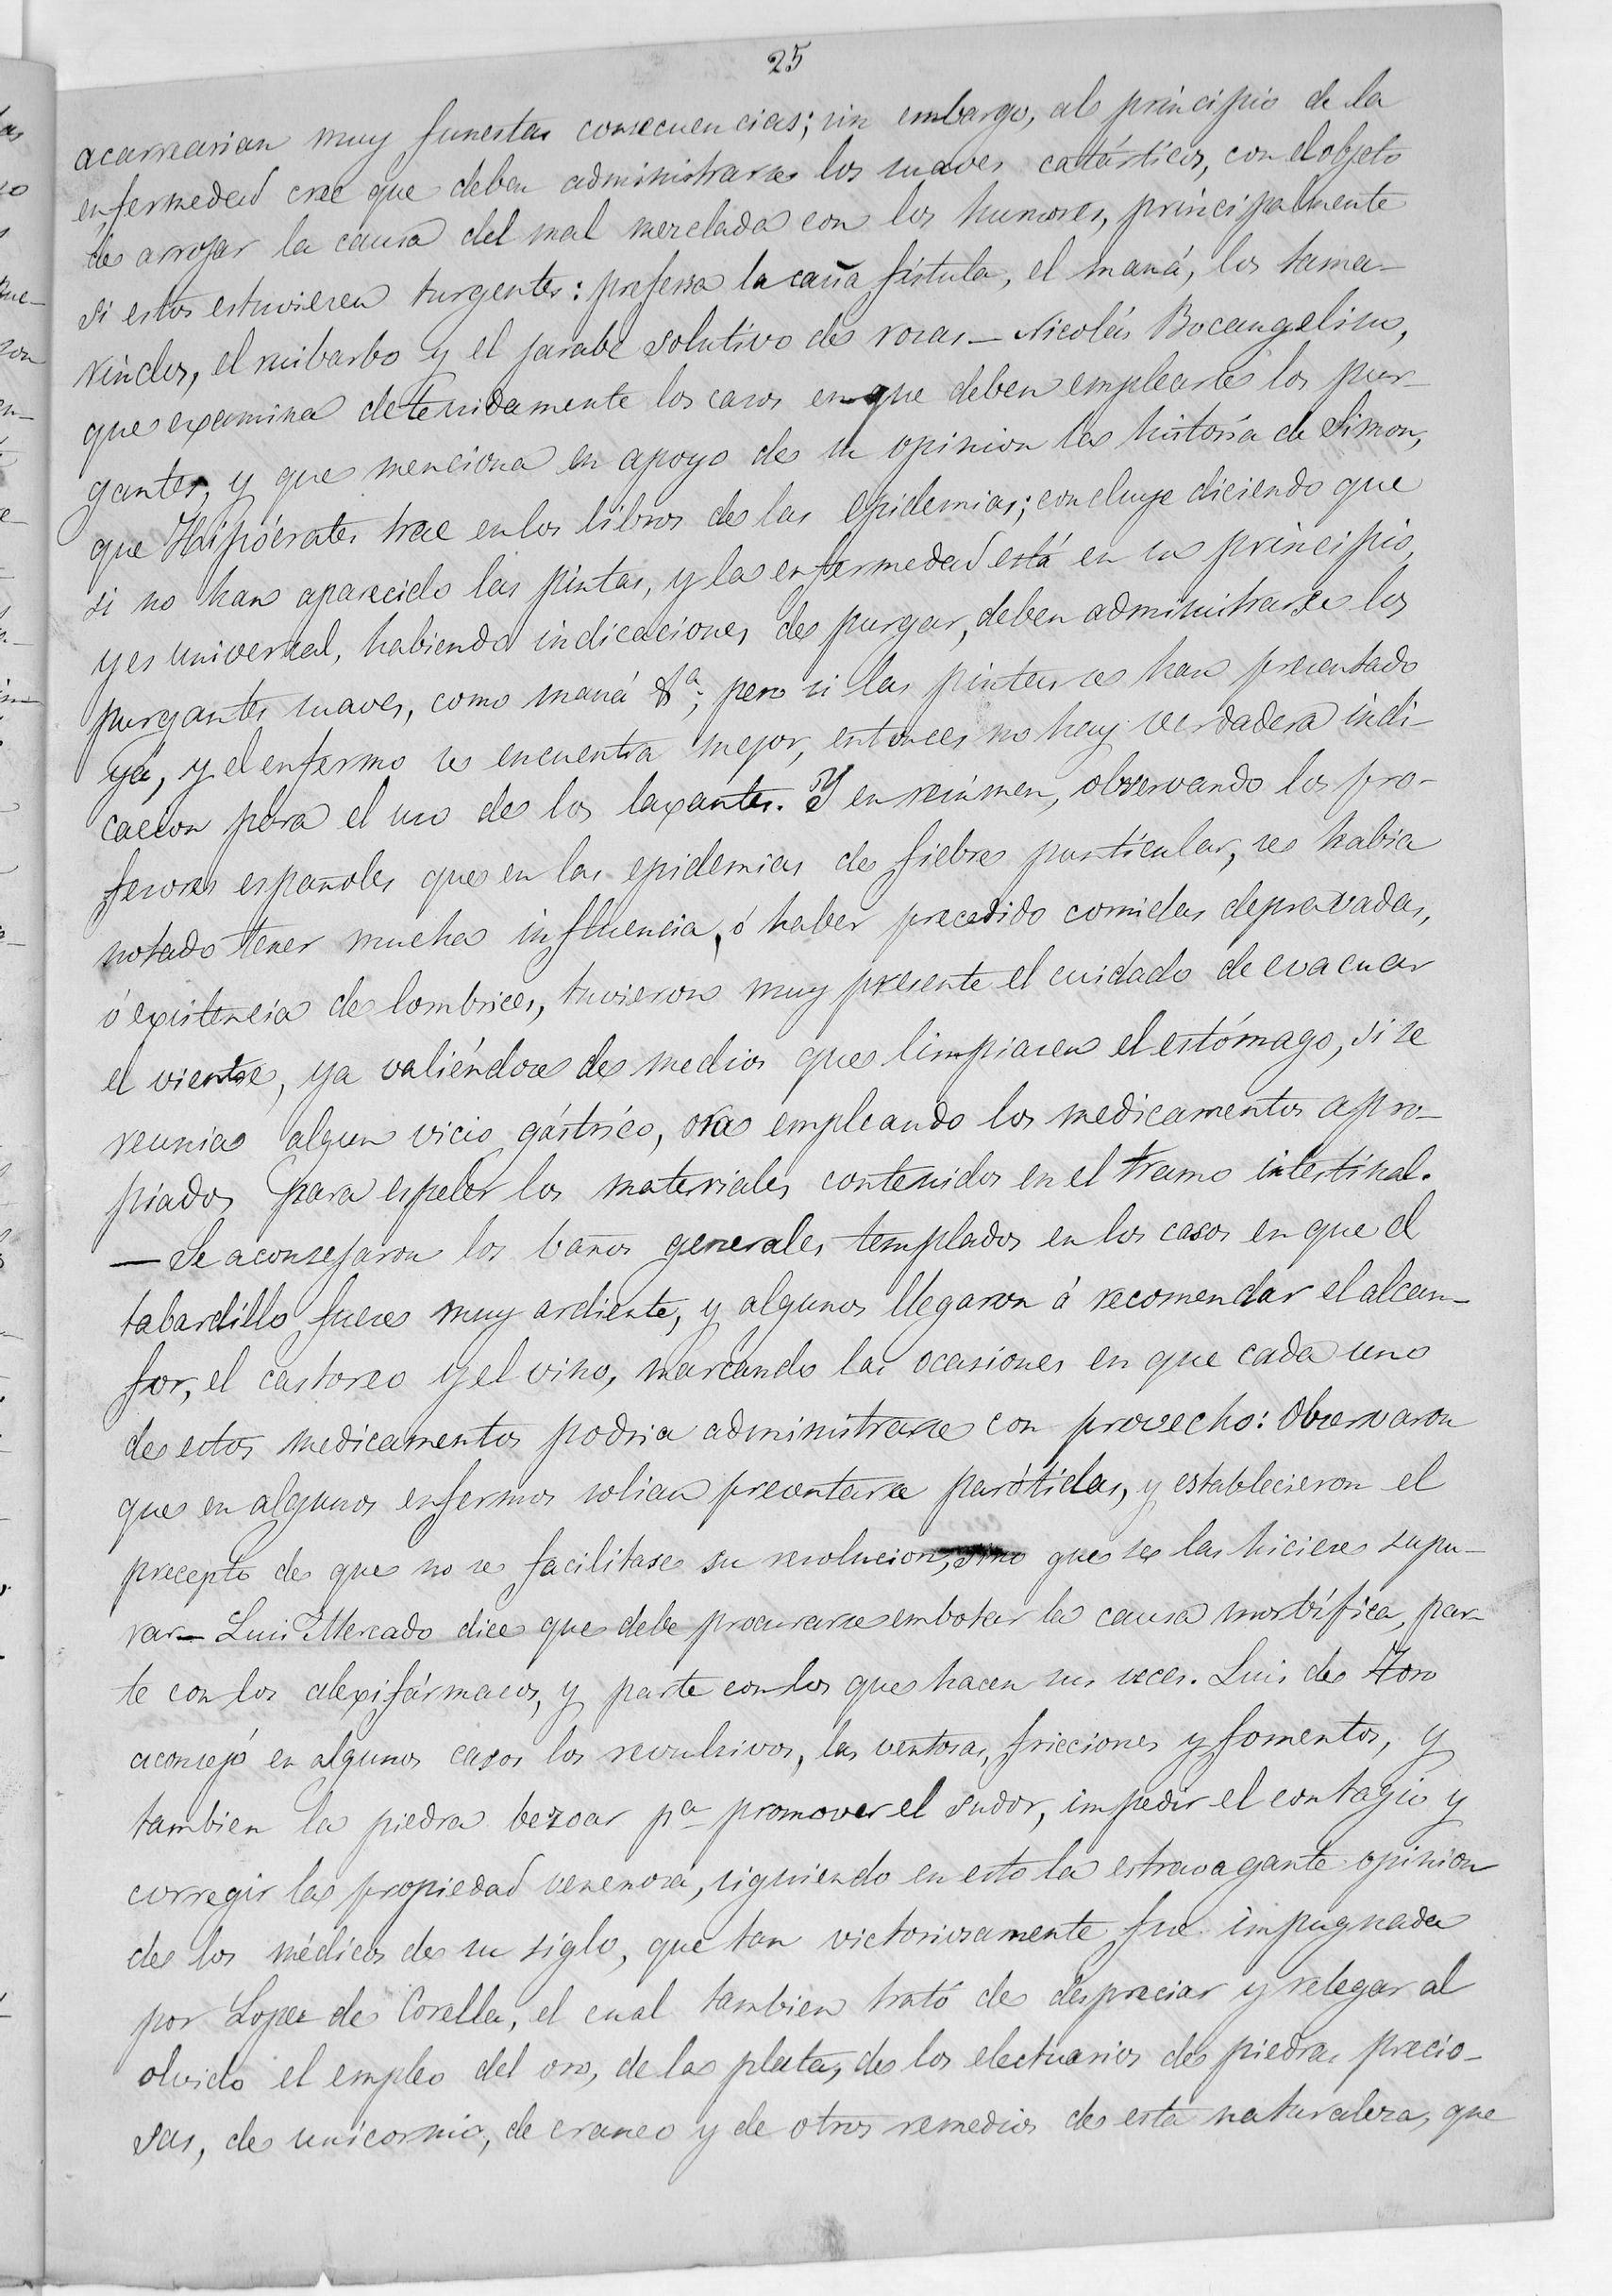 25
acarrearian muy funestas consecuencias; sin embargo, al principio de la
enfermedad cree que deben administrarse los suaves catárticos, con el objeto
de arrojar la causa del mal mezclada con los humores, principalmente
si estos estuvieren turgentes: prefiera la caña fístula, el maná, los tama-
rindos, el ruibarbo y el jarabe solutivo de rosas — Nicolás Bocangelino,
que examina detenidamente los casos en que deben emplearse los pur-
gantes, y que menciona en apoyo de su opinion la historia de Simon,
que Hipócrates trae en los libros de las epidemias; concluye diciendo que
si no han aparecido las pintas, y la enfermedad está en su principio,
y es universal, habiendo indicaciones de purgar, deben administrarse los
purgantes suaves, como maná &ª; pero si las pintas se han presentado
ya, y el enfermo se encuentra mejor, entonces no hay verdadera indi-
cacion para el uso de los laxantes. Y en resúmen, observando los pro-
fesores españoles que en las epidemias de fiebre punticular, se habia
notado tener mucha influencia, ó haber precedido comidas depravadas,
ó existencia de lombrices, tuvieron muy presente el cuidado de evacuar
el vientre, ya valiéndose de medios que limpiasen el estómago, si se
reunia algun vicio gástrico, ora empleando los medicamentos apro-
piados para espeler los materiales contenidos en el tramo intestinal.
— Se aconsejaron los baños generales templados en los casos en que el
tabardillo fuese muy ardiente, y algunos llegaron á recomendar el alcan-
for, el castoreo y el vino, marcando las ocasiones en que cada uno
de estos medicamentos podria administrarse con provecho: Observaron
que en algunos enfermos solian presentarse parótidas, y establecieron el
precepto de que no se facilitase su resolucion, sino que se las hiciese supu-
rar — Luis Mercado dice que debe procurarse embotar la causa morbífica, par-
te con los alexifármacos, y parte con los que hacen sus veces. Luis de Toro
aconsejó en algunos casos los revulsivos, las ventosas, fricciones y fomentos, y
tambien la piedra bezoar pª promover el sudor, impedir el contagio y
corregir la propiedad venenosa, siguiendo en esto la estravagante opinion
de los médicos de su siglo, que tan victoriosamente fue impugnada
por Lopez de Corella, el cual tambien trató de despreciar y relegar al
olvido el empleo del oro, de la plata, de los electuarios de piedras precio-
sas, de unicornio, de craneo y de otros remedios de esta naturaleza, que